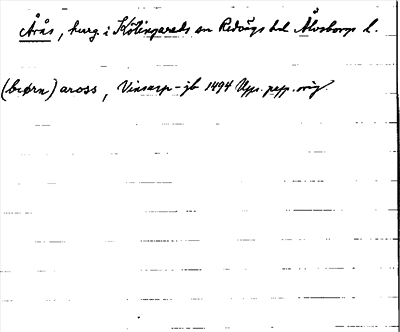 Åräs, herrg. i Kölingareds sn Redvägs hd Älvsborgs l.
(biørn) aross, Vinsarp-jb 1494 Upps. papp. orig.